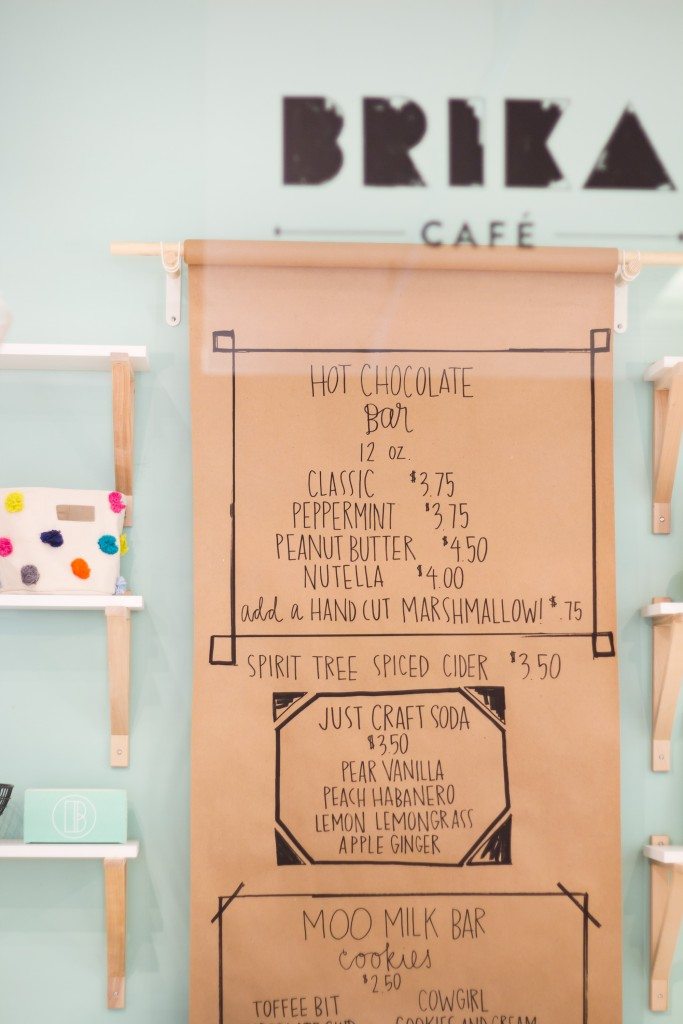 BRIKA
CAFÉ
HOT CHOCOLATE
Bar
12 oz.
CLASSIC $3.75
PEPPERMINT $3.75
PEANUT BUTTER $4.50
NUTELLA $4.00
add a HAND CUT MARSHMALLOW! $.75
SPIRIT TREE SPICED CIDER $3.50
JUST CRAFT SODA
$3.50
PEAR VANILLA
PEACH HABANERO
LEMON LEMONGRASS
APPLE GINGER
MOO MILK BAR
cookies
$2.50
TOFFEE BIT COWGIRL
COOKIES AND CREAM
B